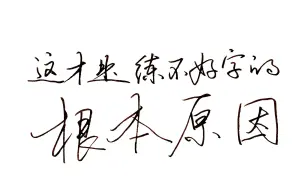 这才是练不好字的
根本原因